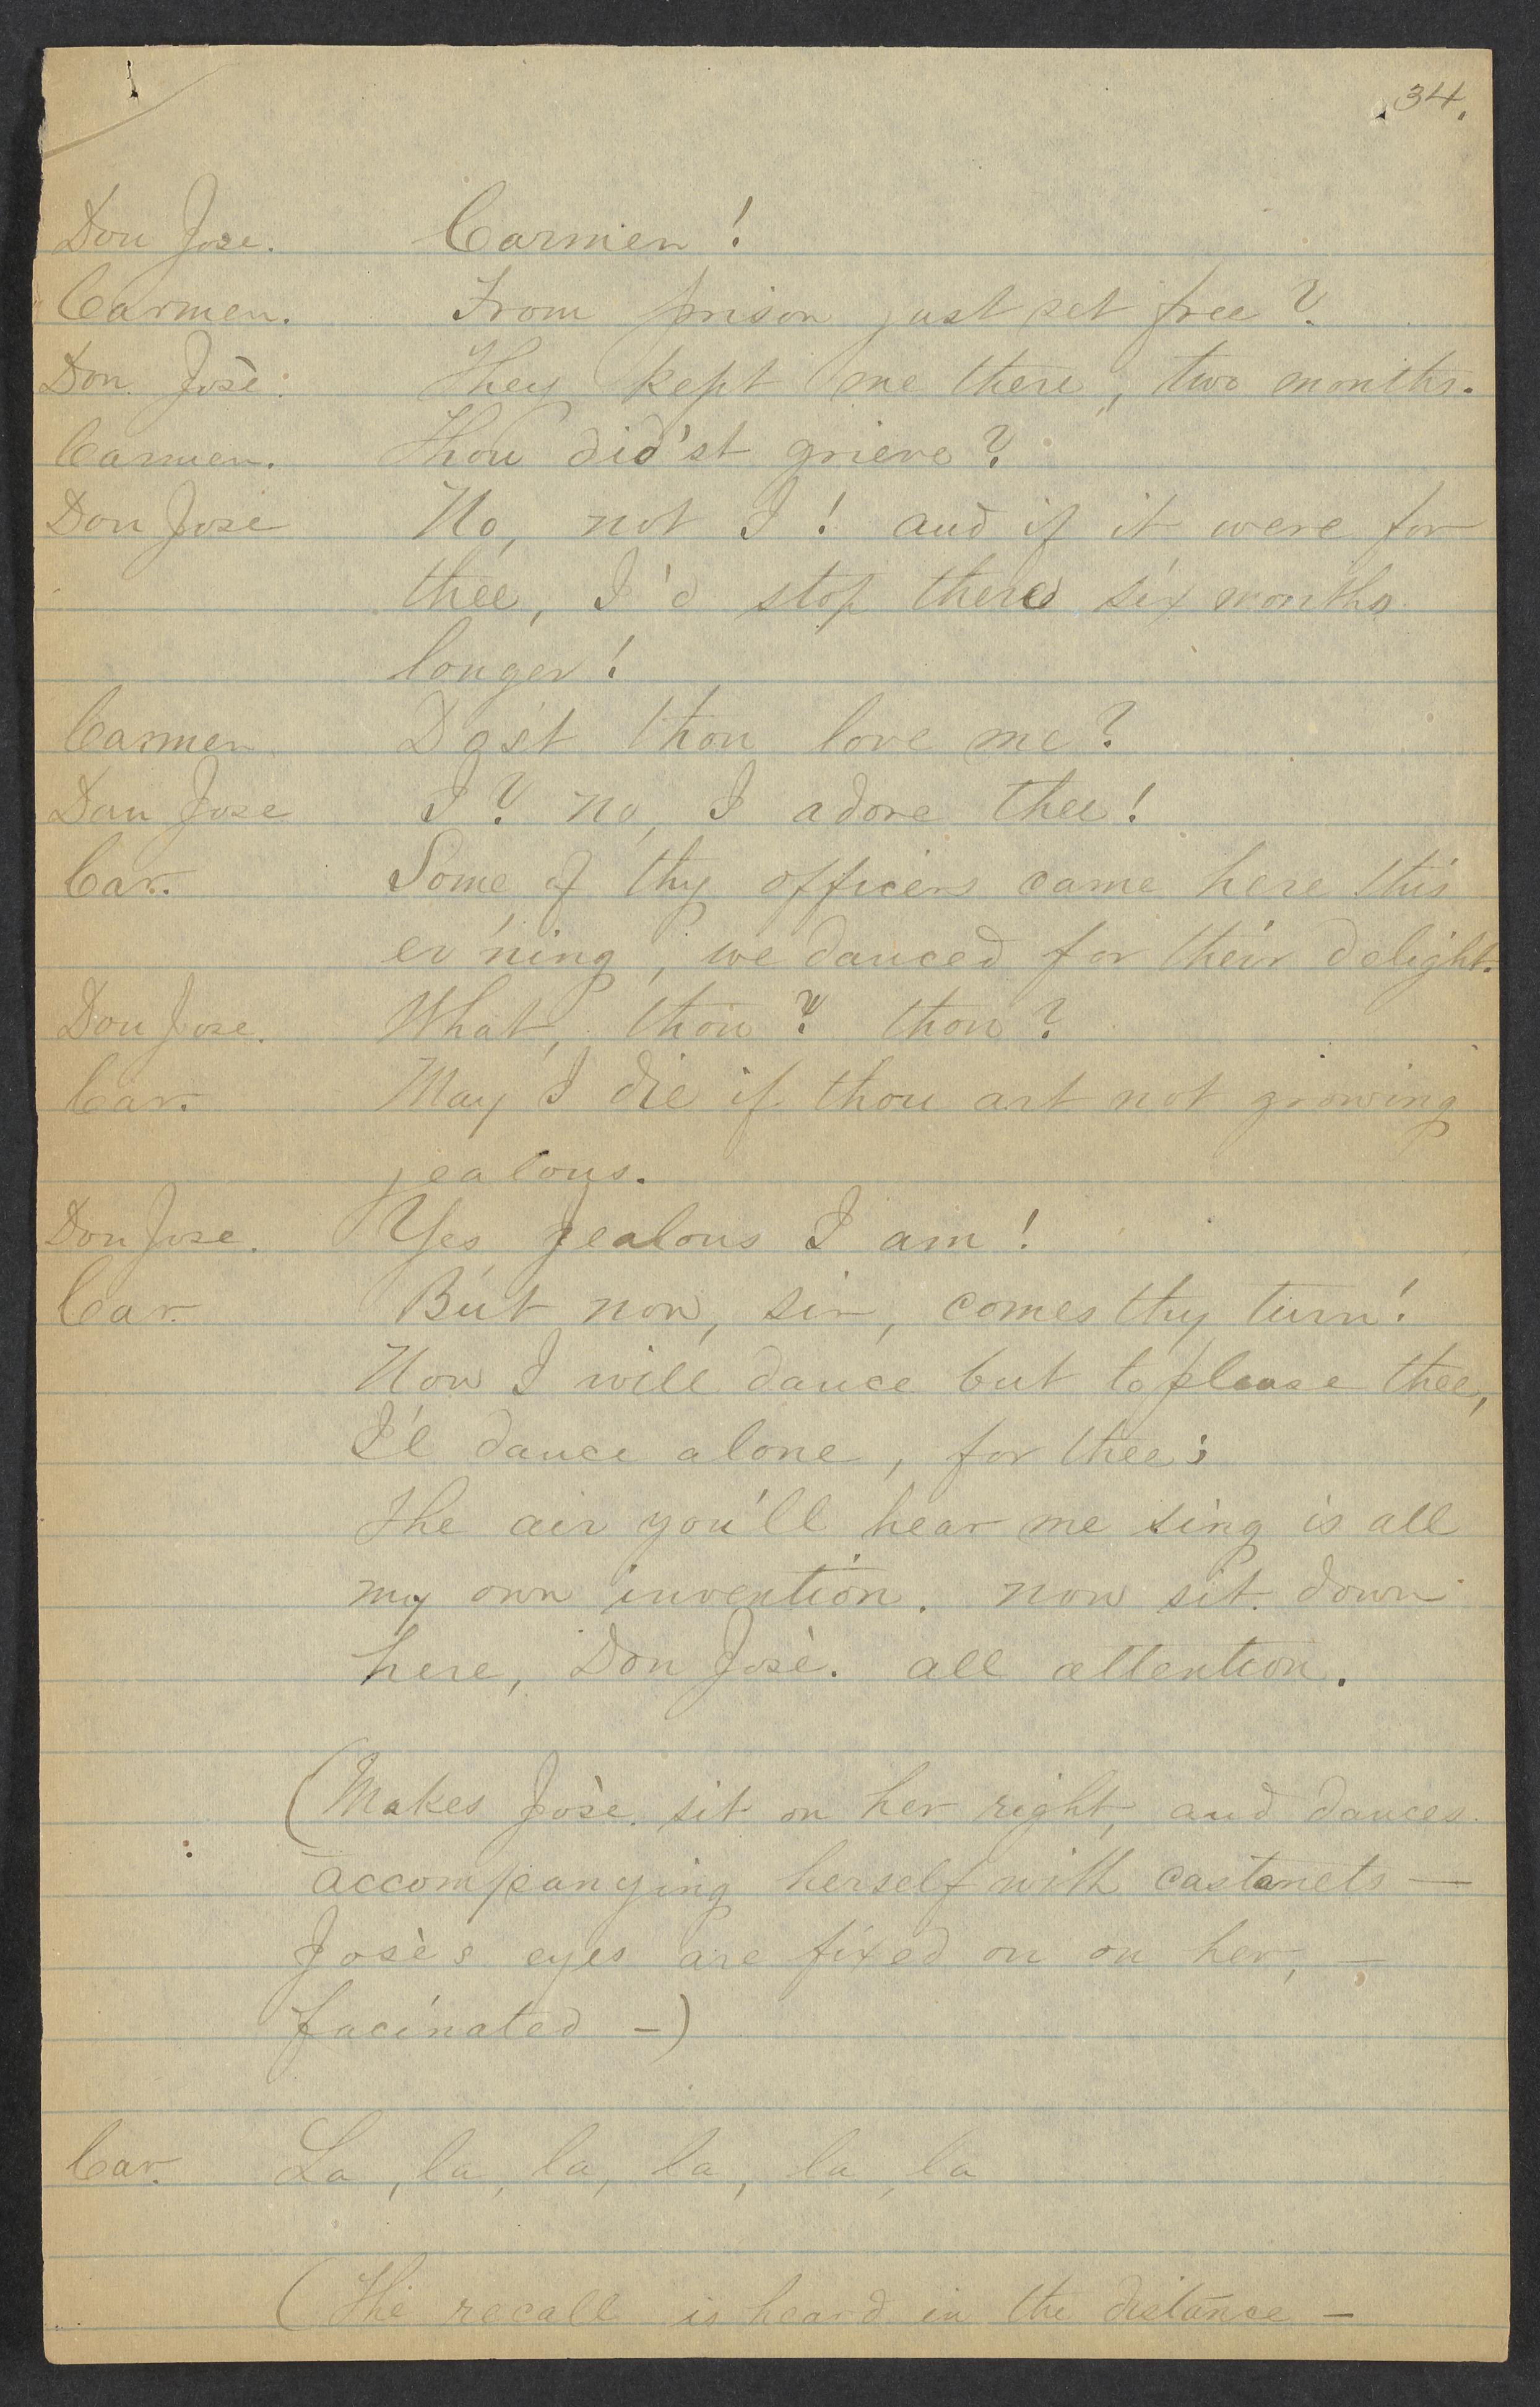 34.
Don Jose. Carmen!
Carmen. From prison just set free?
Don Josè. They kept me there, two months.
Carmen. Thou did'st grieve?
Don Jose No, not I! and if it were for
thee, I'd stop there six months
longer!
Carmen Dost thou love me?
Don Jose I? no, I adore thee!
Car. Some of thy officers came here this
ev'ning, we danced for their delight.
Don Jose. What, thou? thou?
Car. May I die if thou art not growing
jealous.
Don Jose. Yes jealous I am!
Car. But now, sir, comes thy turn!
Now I will dance but to please thee,
I'l dance alone, for thee;
The air you'll hear me sing is all
my own invention. now sit down
here, Don Josè. all attention.
(Makes Josè sit on her right, and dances
accompanying herself with castanets —
Josè's eyes are fixed on on her, —
facinated —)
Car. La, la, la, la, la, la
(The recall is heard in the distance —